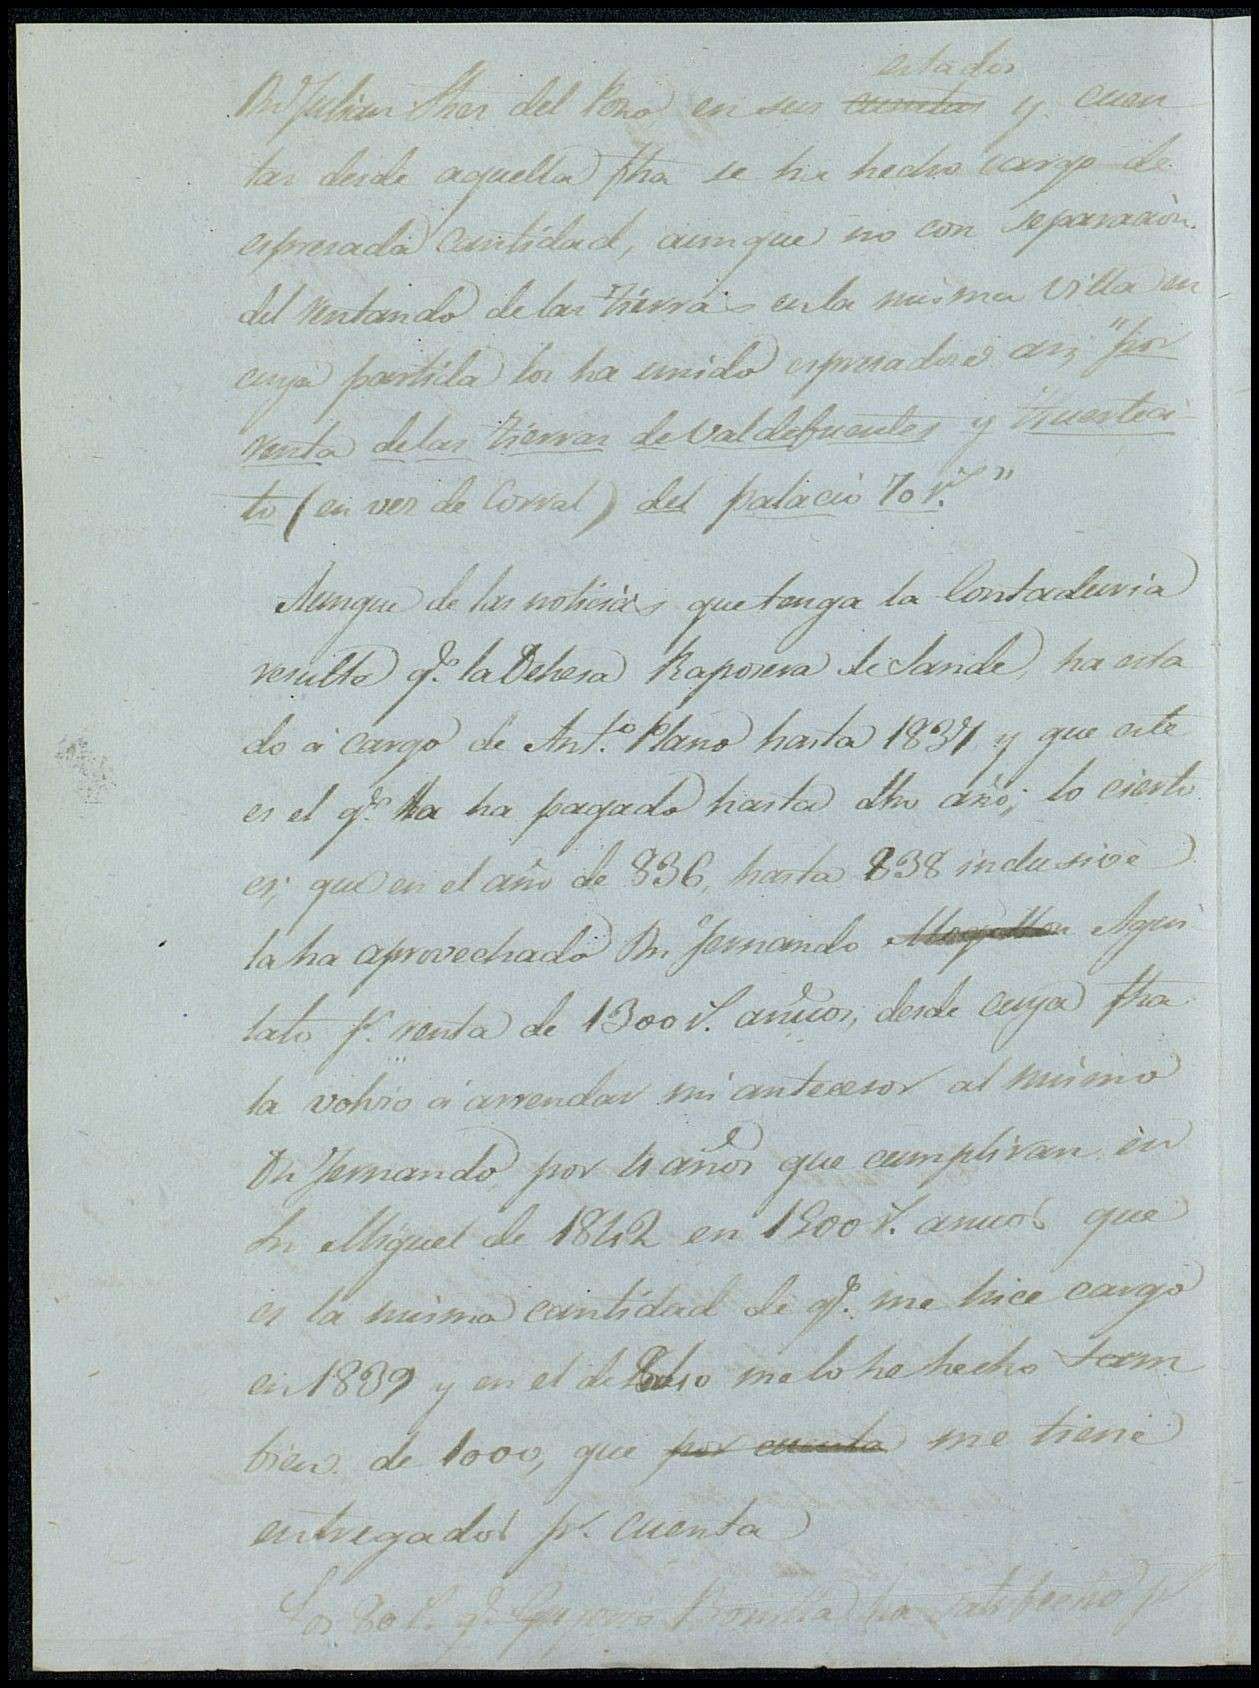 estados
Dn Julian Shez del Pozo en sus cuentas y cuen
tas desde aquella fha se ha hecho cargo de
espresada cantidad, aunque no con separacion
del rentando de las tierras en la misma villa en
cuya partida los ha unido espresadose asi, "por
renta de las tierras de Valdefuentes y Huerteci
to (en vez de Corral) del palacio 70 rs."
Aunque de las noticias que tenga la Contaduria
resulta qe. la Dehesa Raposera de Sande, ha esta
do á cargo de Anto. Plaño hasta 1837 y que este
es el qe. la ha pagado hasta dho año; lo cierto
es, que en el año de 836, hasta 838 inclusive
la ha aprovechado Dn Fernando Agun
tato pr. renta de 1300 rs. anuos, desde cuya fha
la volvio á arrendar mi antecesor al mismo
Dn Fernando por 4 años que cumpliran en
Sn Miguel de 1842 en 1500 rs. anuos que
es la misma cantidad de qe. me hice cargo
en 1839 y en el de 840 me lo he hecho tam
bien de 1000, que por cuenta me tiene
entregados pr. cuenta
Los 80 rs. qe. Bonilla ha satisfecho pr